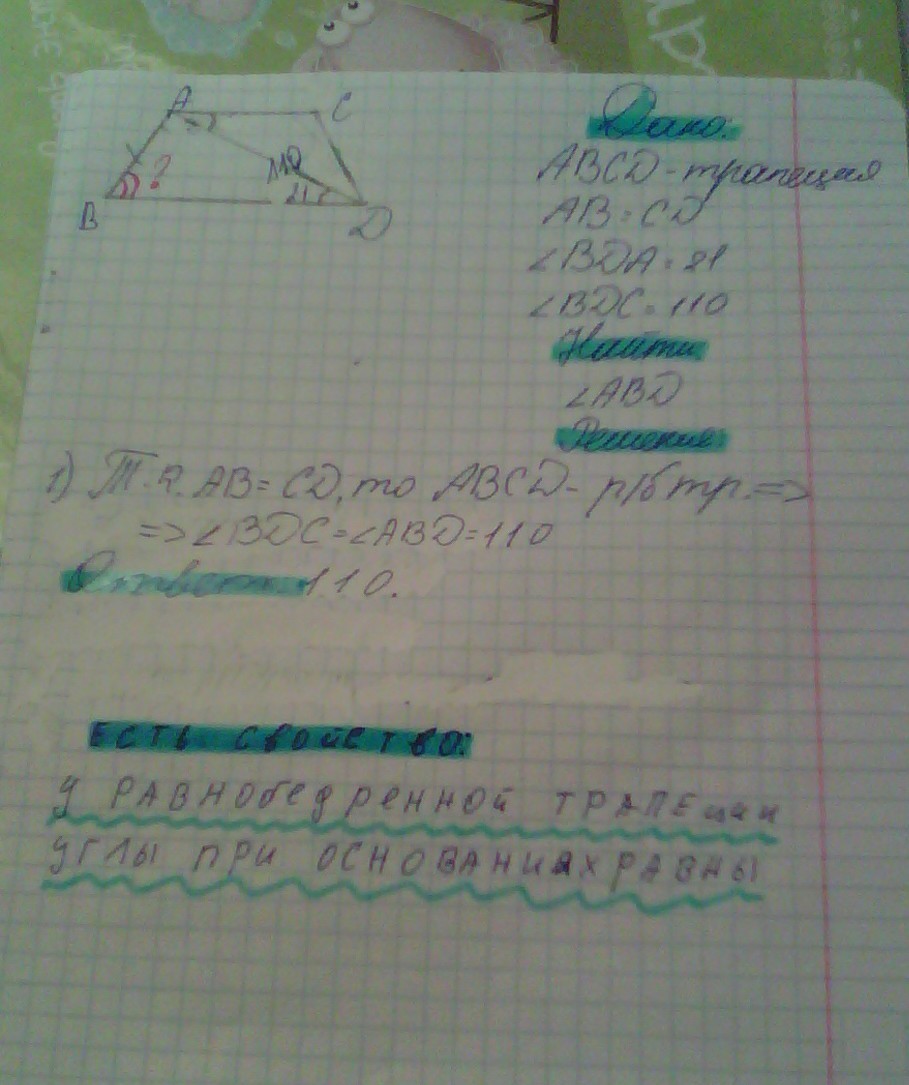 A
C
110
?
21
B
D
Дано:
ABCD - трапеция
AB = CD
∠BDA = 21
∠BDC = 110
Найти
∠ABD
Решение:
1) Т.к. AB = CD, то ABCD - р/б тр. =>
=> ∠BDC = ∠ABD = 110
Ответ: 110.
Есть свойство:
У РАВНОбЕДРЕННОЙ ТРАПЕции
УГЛЫ ПРИ ОСНОВАНИЯХ РАВНЫ